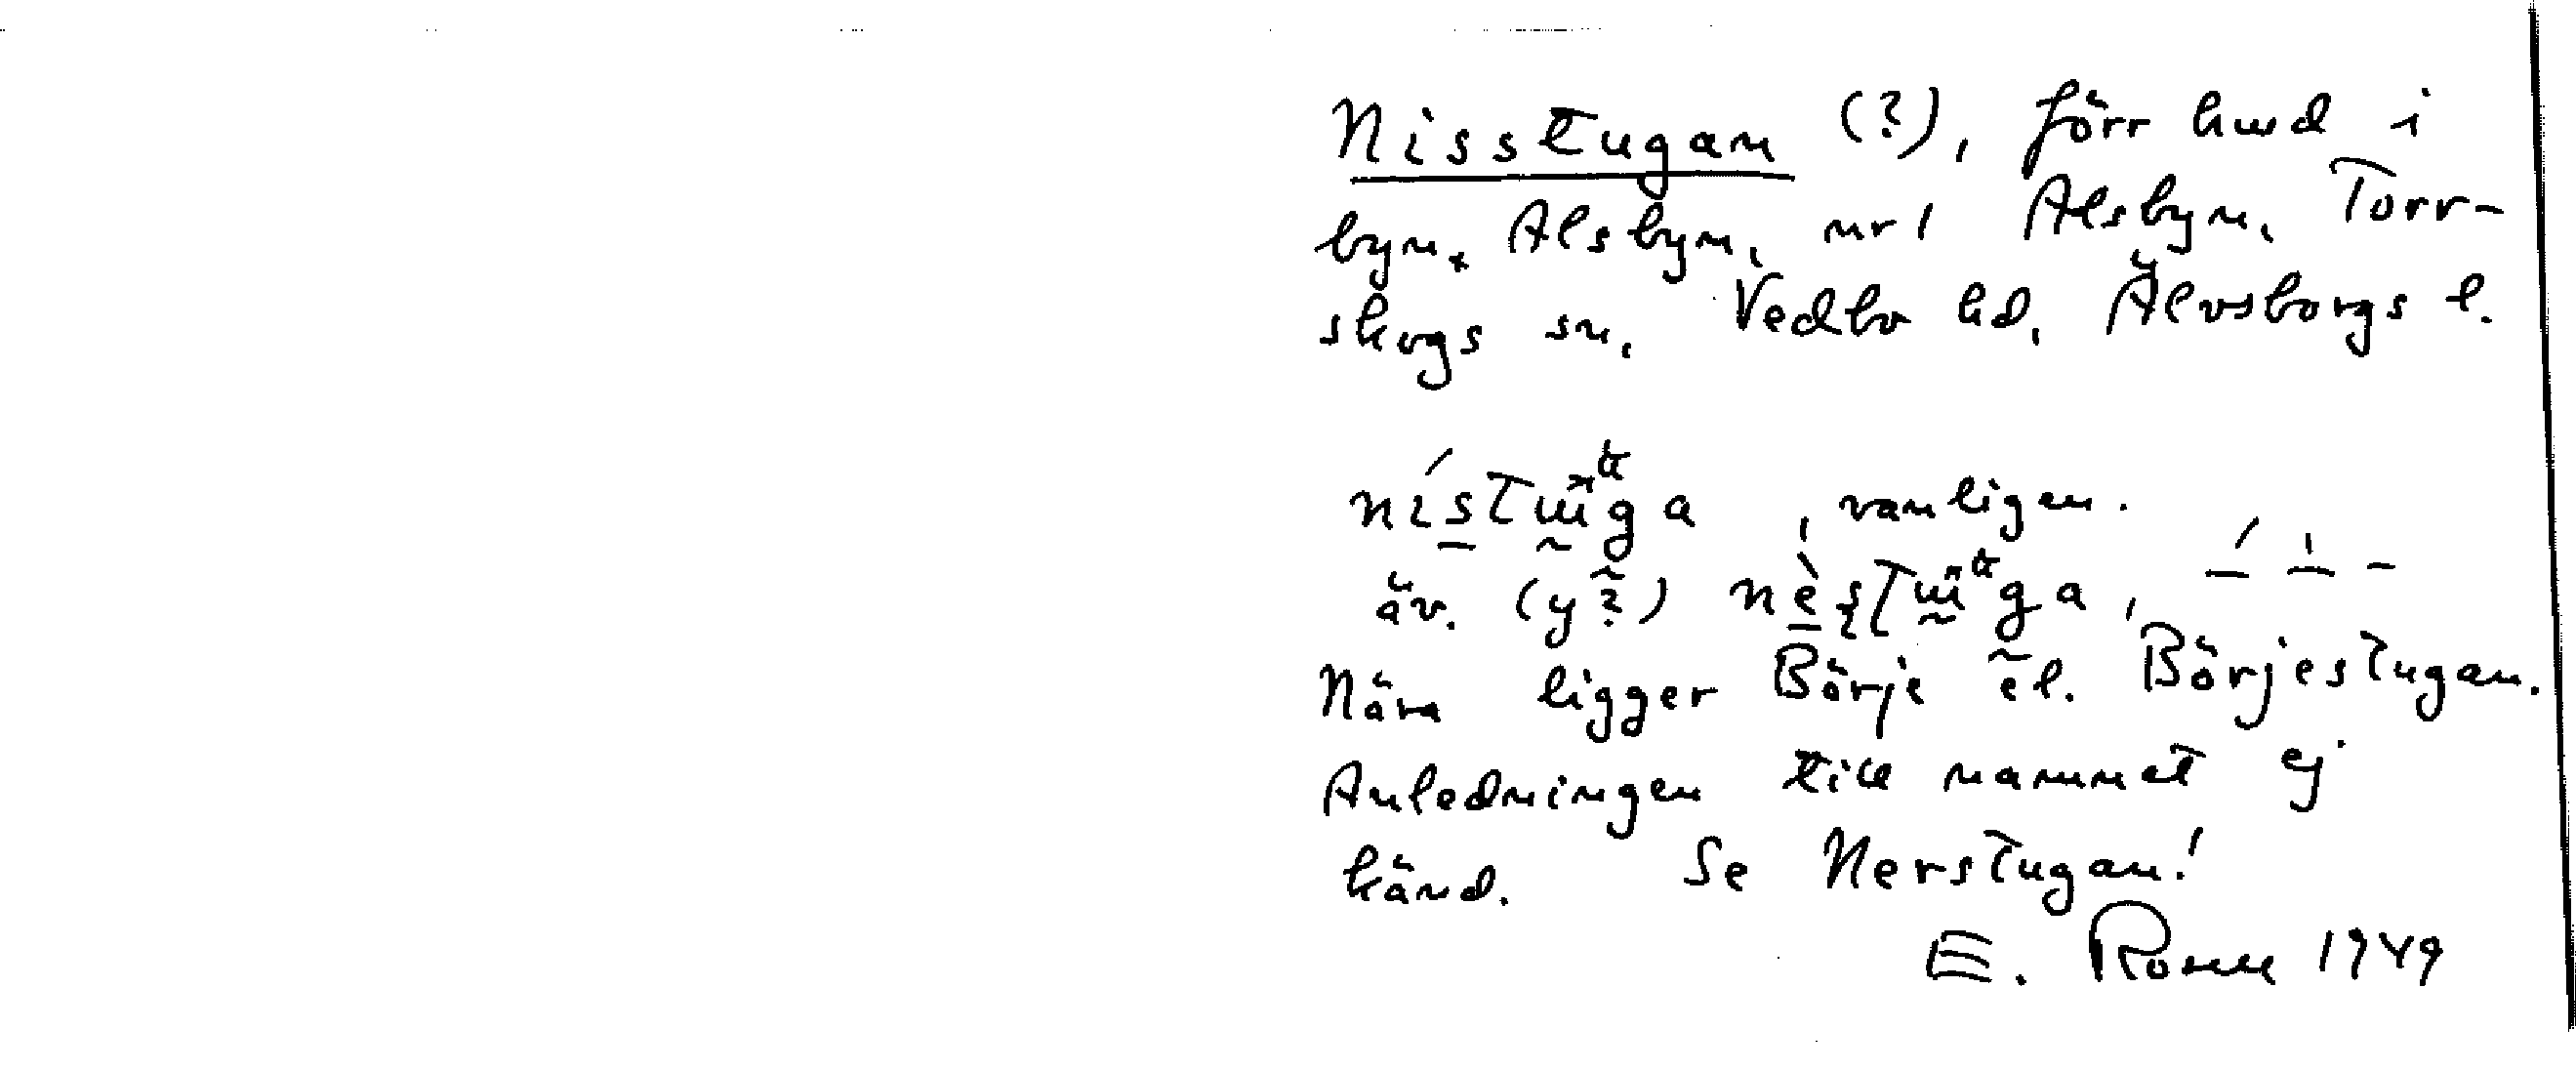 Nisstugan (?), förr hmd i
byn. Alsbyn, nr 1 Alsbyn, Torr-
skogs sn, Vedbo hd, Älvsborgs l.
vanligen.
äv. (y?)
Nära ligger Börje el. Börjestugan.
Anledningen till namnet ej
känd. Se Nerstugan!
E. Rosell 1949